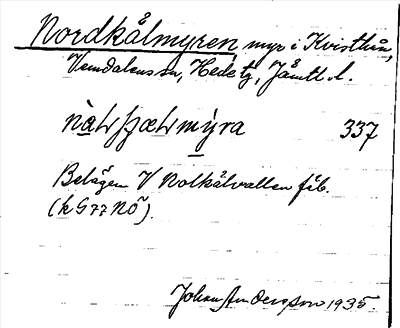 Nordkålmyren myr i Kvisthån,
Vemdalens sn, Hede tg, Jämtl. l.
337
Belägen V Nolkålvallen fäb.
(k G77 NÖ).
Johan Andersson 1935.